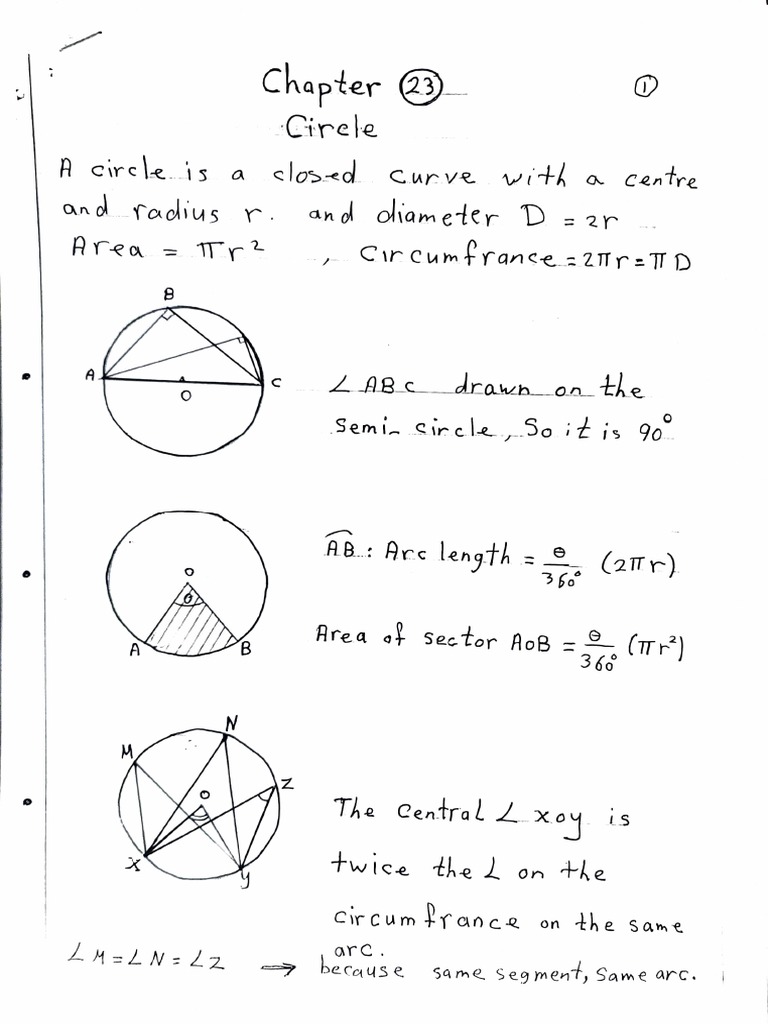 Chapter 23
①
Circle
A circle is a closed curve with a centre
and radius r. and diameter D = 2r
Area = πr² , Circumfrance = 2πr = π D
B
A
C
O
∠ ABC drawn on the
Semi-circle, So it is 90°
O
θ
A
B
AB : Arc length = θ/360° (2πr)
Area of sector AOB = θ/360° (πr²)
N
M
Z
O
X
Y
The Central ∠ xoy is
twice the ∠ on the
circumfrance on the same
arc.
∠M = ∠N = ∠Z → because same segment, Same arc.